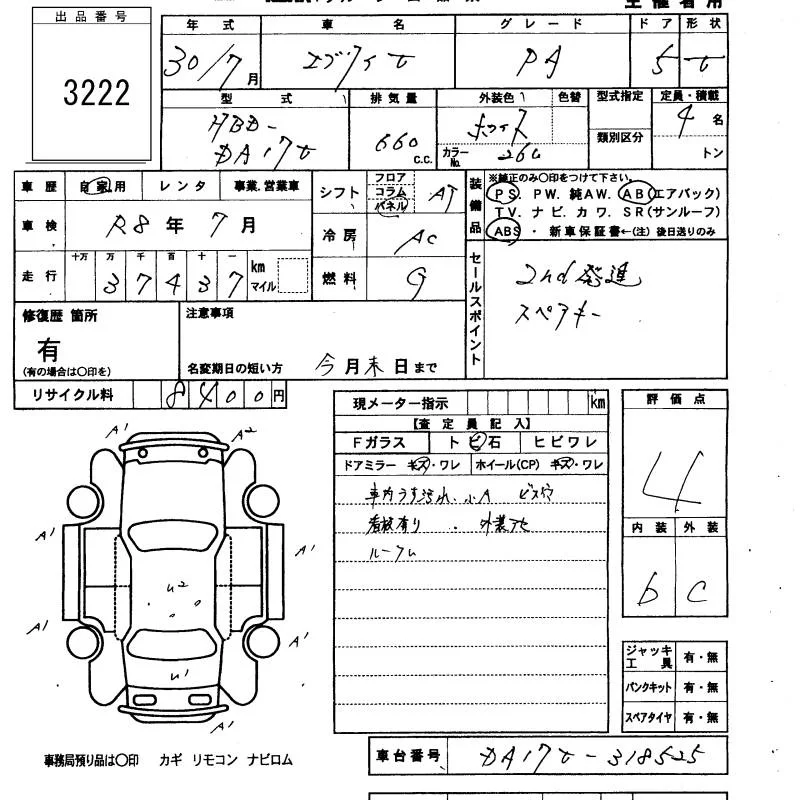 出品番号
3222
年式 車名 グレード ドア 形状
30/7月 エブリイV PA 5 V
型式 排気量 外装色 色替 型式指定 定員・積載
HBD-DA17V 660 c.c. ホワイト カラーNo. 26U 類別区分 4名 トン
車歴 自家用 レンタ 事業.営業車
シフト フロア コラム パネル AT
装備品 ※純正のみ〇印をつけて下さい。
PS. PW. 純AW. AB(エアバック)
TV. ナビ. カワ. SR(サンルーフ)
ABS・新車保証書←(注)後日送りのみ
車検 R8年7月
冷房 AC
走行 十万 万 千 百 十 一
37437 km マイル
燃料 G
セールスポイント
2nd発進
スペアキー
修復歴 箇所
有
(有の場合は〇印を)
注意事項
名変期日の短い方 今月末日まで
リサイクル料 8400円
現メーター指示 km
【査定員記入】
Fガラス トビ石 ヒビワレ
ドアミラー キズ・ワレ ホイール(CP) キズ・ワレ
車内うす汚れ、小A ビス穴
看板有り・外装アセ
ルーフU
評価点
4
内装 外装
b C
ジャッキ工具 有・無
パンクキット 有・無
スペアタイヤ 有・無
A1 A2
A1 A1
U2
A1 A1
U1
A1
車台番号 DA17V-318525
事務局預り品は〇印 カギ リモコン ナビロム